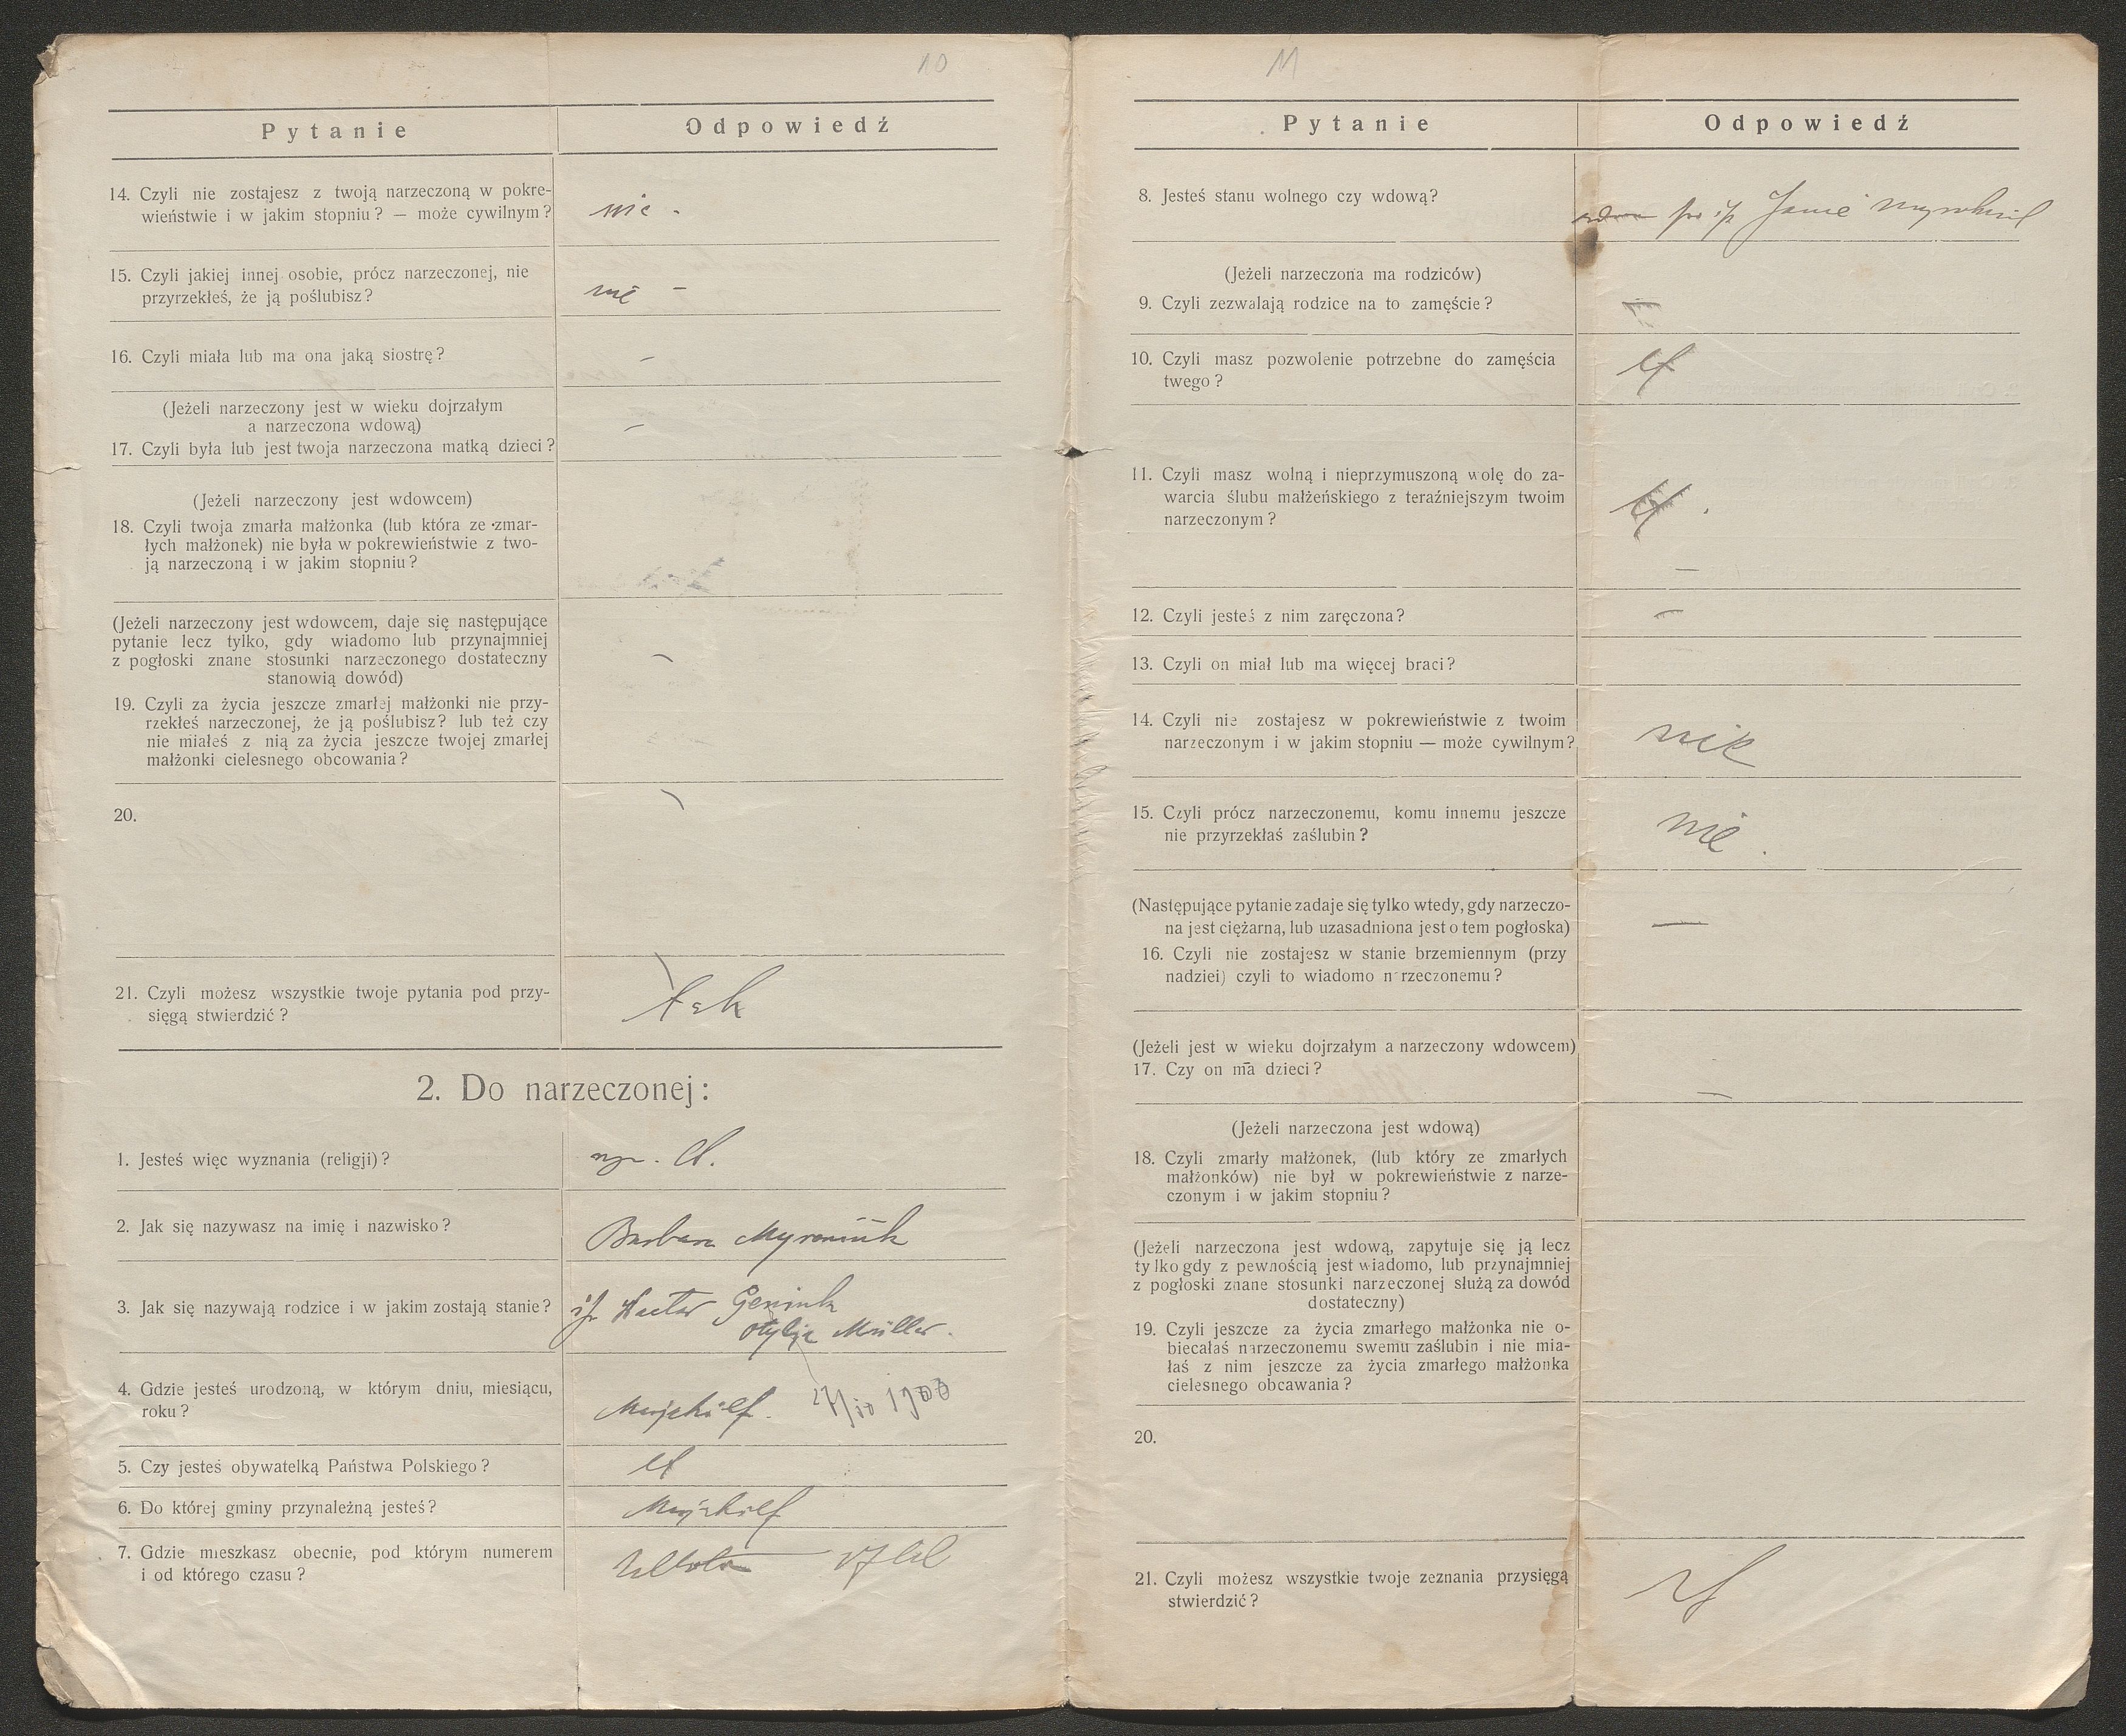 10
Pytanie
Odpowiedź
14. Czyli nie zostajesz z twoją narzeczoną w pokre-
wieństwie i w jakim stopniu? — może cywilnym?
nie -
15. Czyli jakiej innej osobie, prócz narzeczonej, nie
przyrzekłeś, że ją poślubisz?
nie -
16. Czyli miała lub ma ona jaką siostrę?
-
(Jeżeli narzeczony jest w wieku dojrzałym
a narzeczona wdową)
17. Czyli była lub jest twoja narzeczona matką dzieci?
-
(Jeżeli narzeczony jest wdowcem)
18. Czyli twoja zmarła małżonka (lub która ze zmar-
łych małżonek) nie była w pokrewieństwie z two-
ją narzeczoną i w jakim stopniu?
(Jeżeli narzeczony jest wdowcem, daje się następujące
pytanie lecz tylko, gdy wiadomo lub przynajmniej
z pogłoski znane stosunki narzeczonego dostateczny
stanowią dowód)
19. Czyli za życia jeszcze zmarłej małżonki nie przy-
rzekłeś narzeczonej, że ją poślubisz? lub też czy
nie miałeś z nią za życia jeszcze twojej zmarłej
małżonki cielesnego obcowania?
20.
21. Czyli możesz wszystkie twoje pytania pod przy-
sięgą stwierdzić?
tak
2. Do narzeczonej:
1. Jesteś więc wyznania (religji)?
2. Jak się nazywasz na imię i nazwisko?
Barbara Myroniuk
3. Jak się nazywają rodzice i w jakim zostają stanie?
Otylja Müller.
4. Gdzie jesteś urodzoną, w którym dniu, miesiącu,
roku?
5. Czy jesteś obywatelką Państwa Polskiego?
6. Do której gminy przynależną jesteś?
7. Gdzie mieszkasz obecnie, pod którym numerem
i od którego czasu?
11
Pytanie
Odpowiedź
8. Jesteś stanu wolnego czy wdową?
(Jeżeli narzeczona ma rodziców)
9. Czyli zezwalają rodzice na to zamęście?
10. Czyli masz pozwolenie potrzebne do zamęścia
twego?
11. Czyli masz wolną i nieprzymuszoną wolę do za-
warcia ślubu małżeńskiego z teraźniejszym twoim
narzeczonym?
12. Czyli jesteś z nim zaręczona?
13. Czyli on miał lub ma więcej braci?
14. Czyli nie zostajesz w pokrewieństwie z twoim
narzeczonym i w jakim stopniu — może cywilnym?
nie
15. Czyli prócz narzeczonemu, komu innemu jeszcze
nie przyrzekłaś zaślubin?
nie.
(Następujące pytanie zadaje się tylko wtedy, gdy narzeczo-
na jest ciężarną, lub uzasadniona jest o tem pogłoska)
—
16. Czyli nie zostajesz w stanie brzemiennym (przy
nadziei) czyli to wiadomo n rzeczonemu?
(Jeżeli jest w wieku dojrzałym a narzeczony wdowcem)
17. Czy on ma dzieci?
—
(Jeżeli narzeczona jest wdową)
18. Czyli zmarły małżonek, (lub który ze zmarłych
małżonków) nie był w pokrewieństwie z narze-
czonym i w jakim stopniu?
(Jeżeli narzeczona jest wdową, zapytuje się ją lecz
tylko gdy z pewnością jest wiadomo, lub przynajmniej
z pogłoski znane stosunki narzeczonej służą za dowód
dostateczny)
19. Czyli jeszcze za życia zmarłego małżonka nie o-
biecałaś narzeczonemu swemu zaślubin i nie mia-
łaś z nim jeszcze za życia zmarłego małżonka
cielesnego obcawania?
20.
21. Czyli możesz wszystkie twoje zeznania przysięgą
stwierdzić?